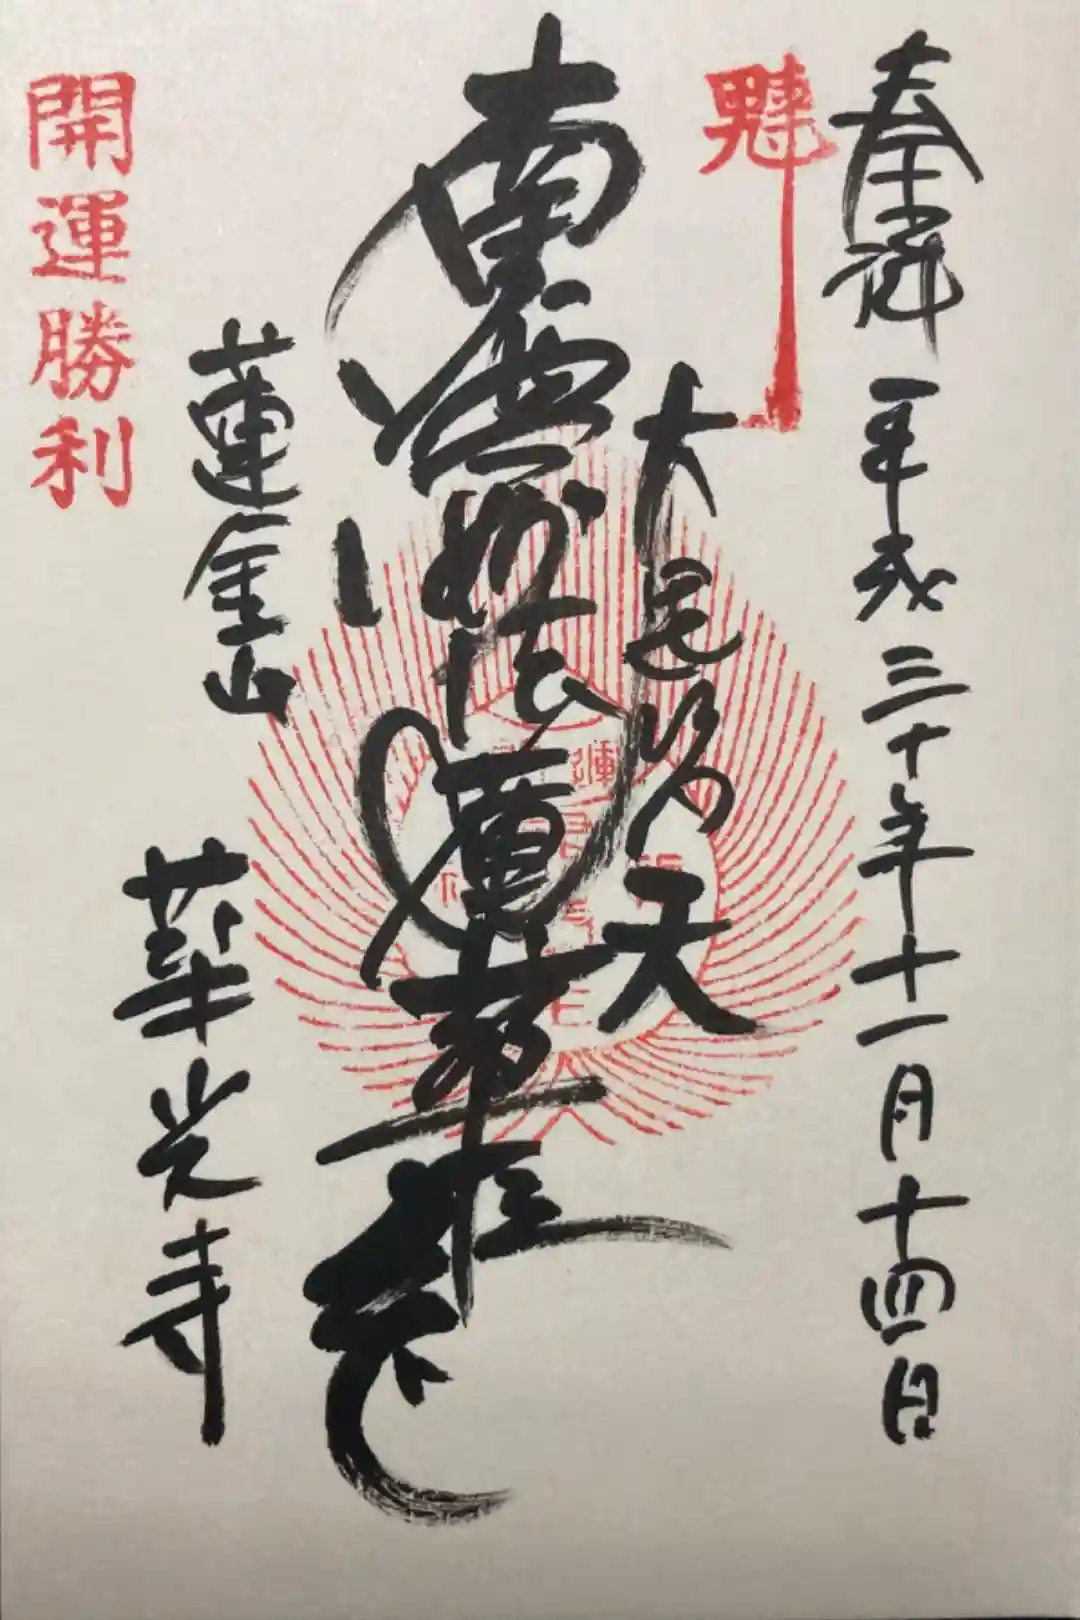 奉拝 平成三十年十一月十四日
魁
大毘沙天
南無妙法蓮華経
蓮金山
華光寺
開運勝利